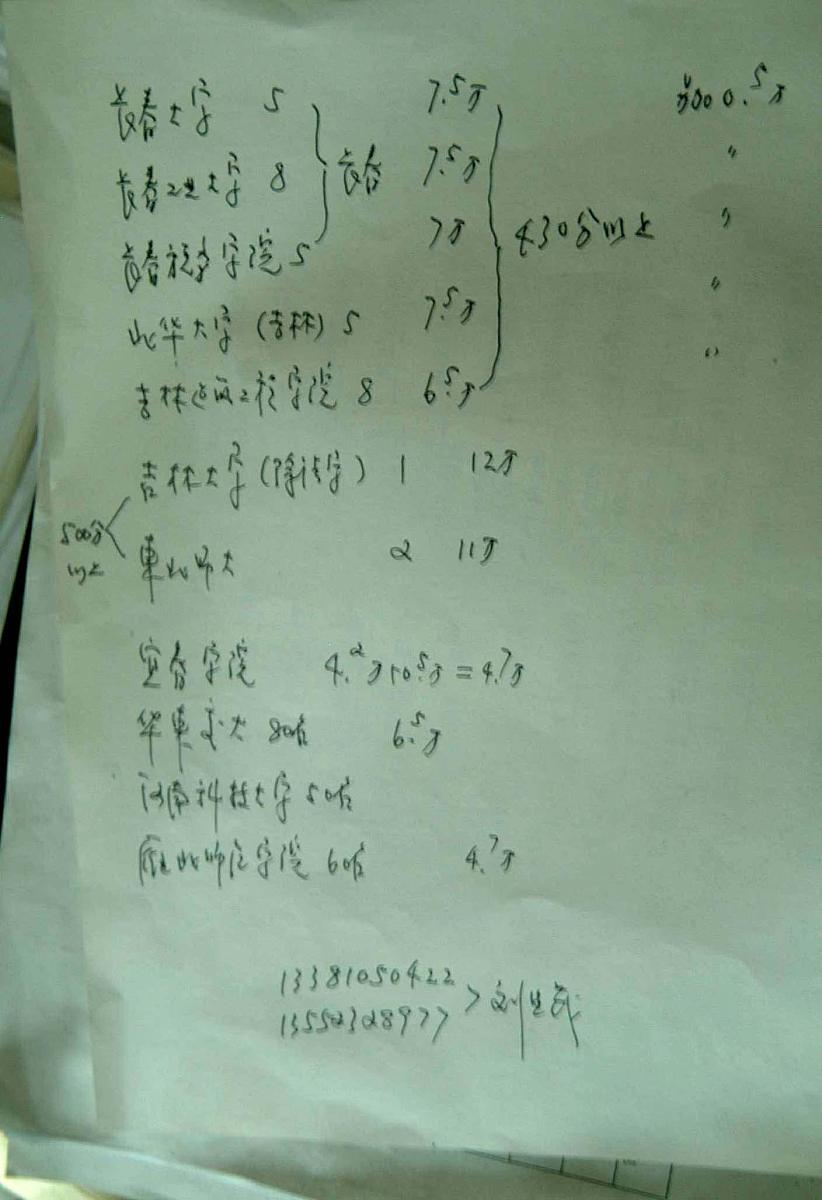 長春大学 5 7.5万 加 0.5万
長春工业大学 8 長春 7.5万 〃
7万 430分以上 〃
長春税务学院 5
北华大学 (吉林) 5 7.5万 〃
吉林建筑工程学院 8 6.5万 〃
吉林大学 (除法学) 1 12万
500分以上
東北师大 2 11万
宜春学院 4.2万+0.5万=4.7万
华東交大 80名 6.5万
河南科技大学 50名
师范学院 60名 4.7万
13381050422
13552328977 > 刘